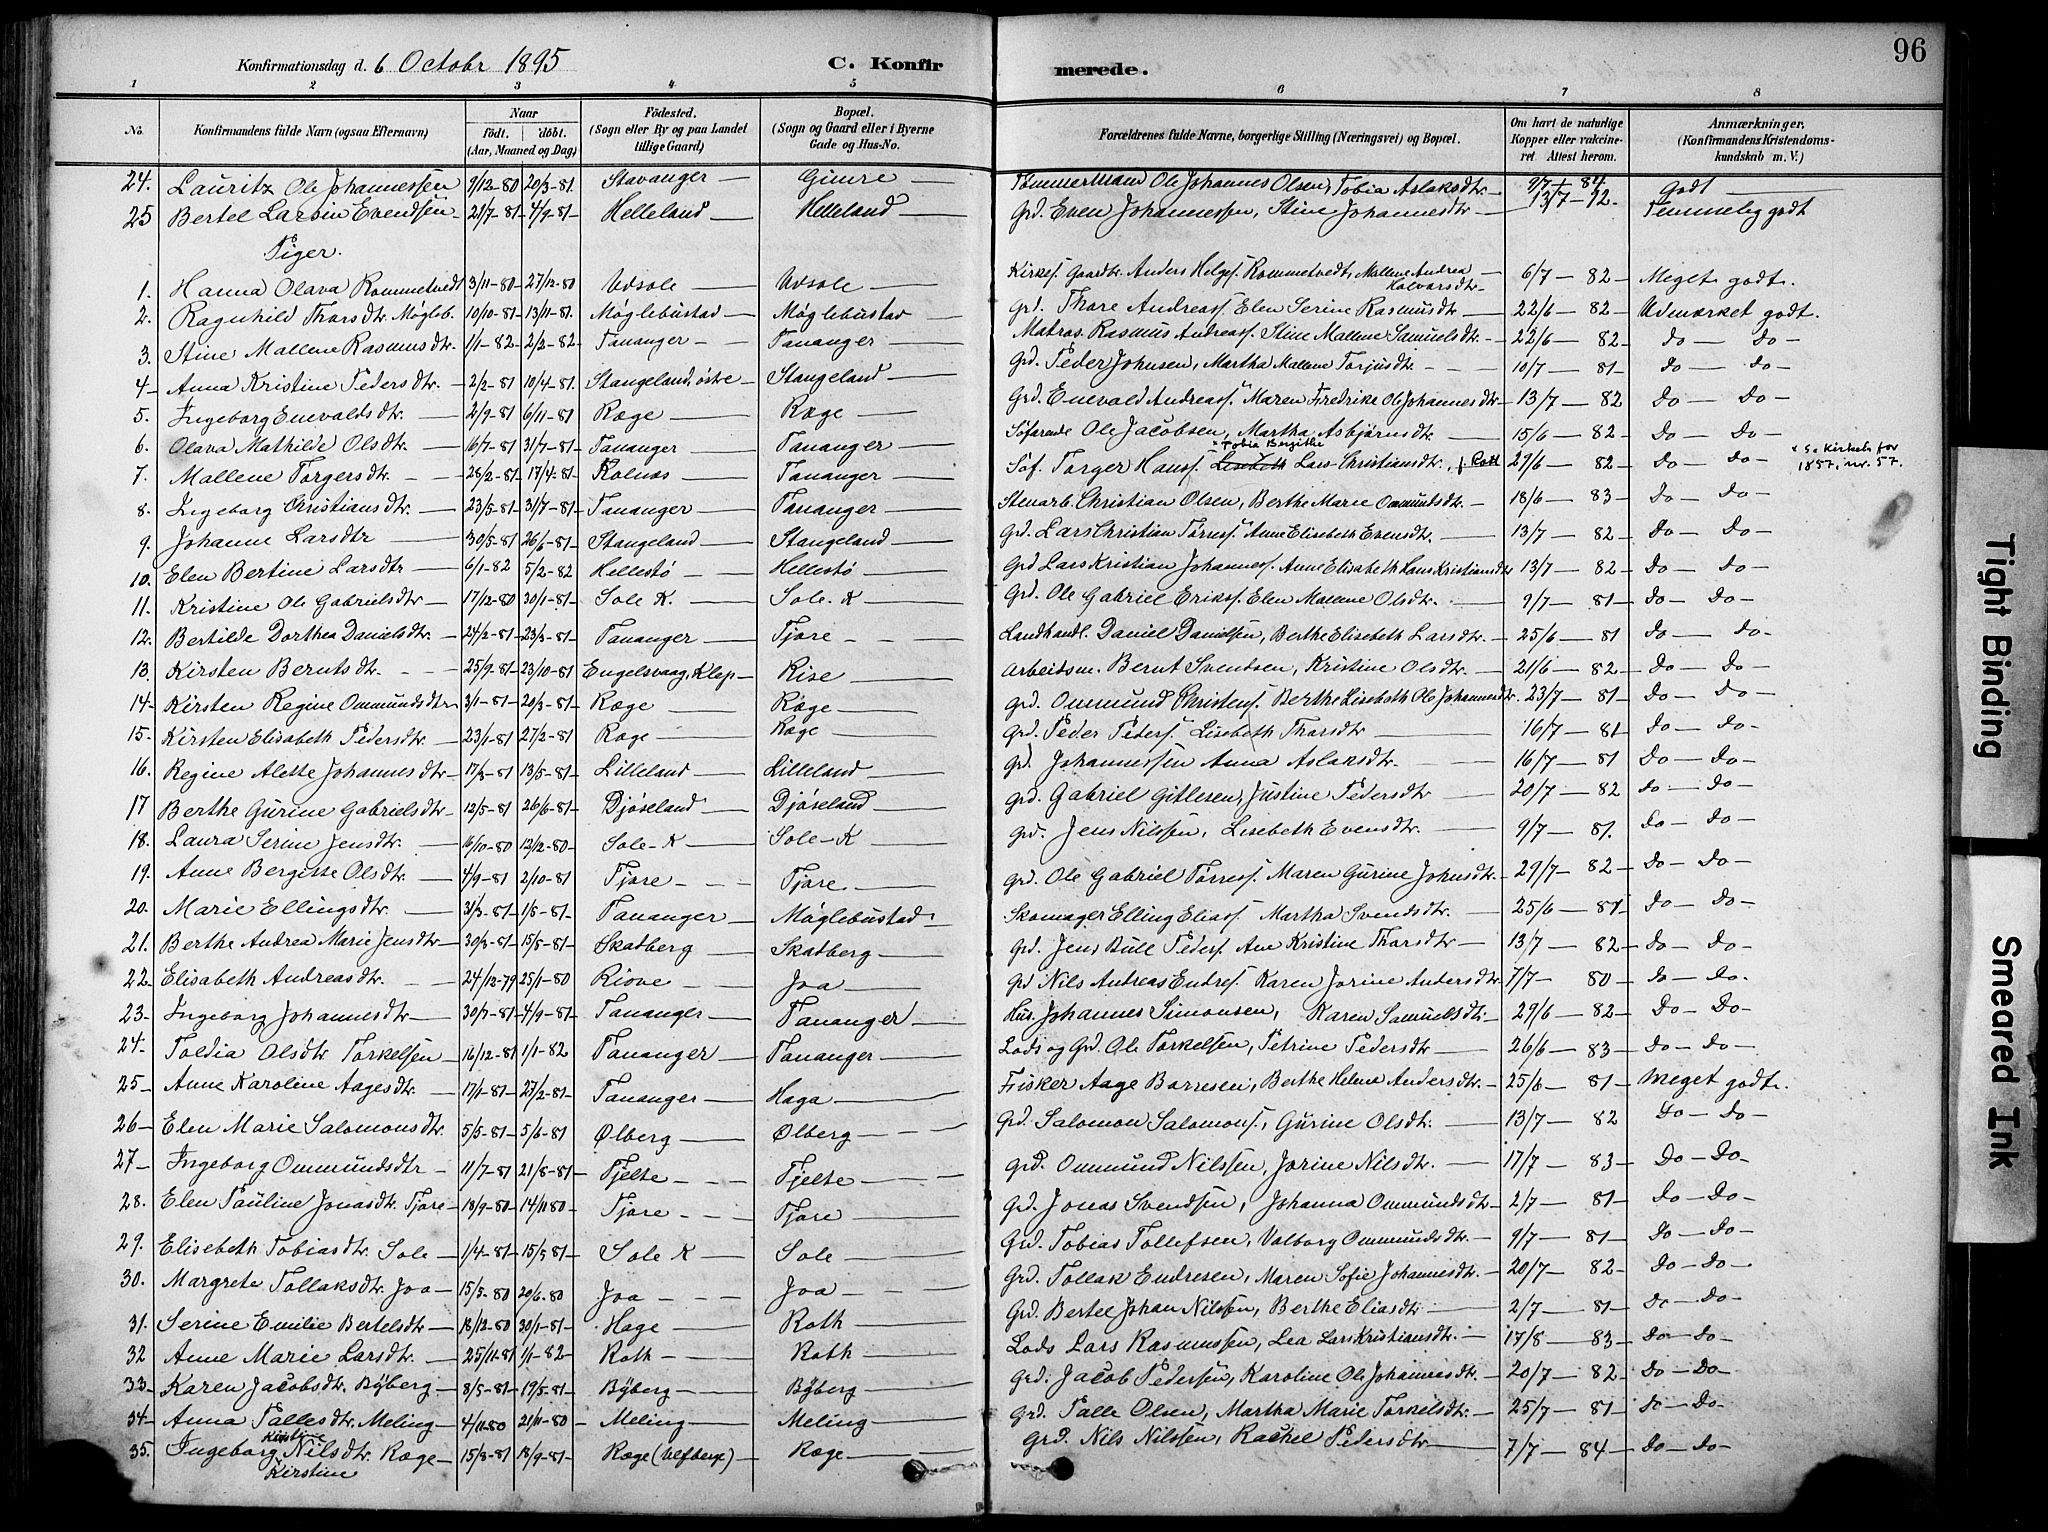 96
Konfirmationsdag d. 6 Octobr 1895 C. Konfirmerede.
1 2 3 4 5 6 7 8
No. Konfirmandens fulde Navn (ogsaa Efternavn) Naar født. døbt. (Aar, Maaned og Dag) Fødested. (Sogn eller By og paa Landet tillige Gaard) Bopæl. (Sogn og Gaard eller i Byerne Gade og Hus-No. Forældrenes fulde Navne, borgerlige Stilling (Næringsvei) og Bopæl. Om havt de naturlige Kopper eller vaccineret. Attest herom. Anmærkninger. (Konfirmandens Kristendomskundskab m. V.)
24. Lauritz Ole Johannessen 9/12-80 20/3-81 Stavanger Gimre Tømmermand Ole Johannes Olsen, Tobia Aslaksdtr. 9/7 - 84 Godt
25 Bertel Larsin Evendsen 21/7-81 4/9-81 Helleland Helleland Grd. Even Johannessen, Stine Johannesdtr 13/7 - 92. Temmelig godt
Piger.
1. Hanna Olava Rommetvedt 3/11-80 27/12-80 Udsole Udsole Kirkes. Gaardbr. Anders Helges. Rommetvedt, Mallene Andrea Halvarsdtr. 6/7 - 82 Meget godt.
2. Ragnhild Tharsdtr. Mögleb. 10/10-81 13/11-81 Møglebustad Møglebustad Grd. Thore Andreass. Elen Serine Rasmusdtr 22/6 - 82 Udmærket godt.
3. Stine Mallene Rasmusdtr. 1/1-82 2/2-82 Tananger Tananger Matros. Rasmus Andreass. Stine Mallene Samuelsdtr. 22/6 - 82 do do
4 Anna Kristine Pedersdtr. 2/2-81 10/4-81 Stangeland, østre Stangeland Grd. Peder Johnsen, Martha Mallene Torjusdtr 10/7 - 81 do do
5. Ingeborg Enevaldsdtr. 2/9-81 6/11-81 Ræge Ræge Grd. Enevald Andreass. Maren Fredrike Ole Johannesdtr 13/7 - 82 Do Do
6. Olava Mathilde Olsdtr. 16/7-81 31/7-81 Tananger Tananger Søfarende Ole Jacobsen, Martha Asbjørnsdtr 15/6 - 82 Do Do
7. Mallene Torgersdtr. 28/2-81 17/4-81 Kolnæs Tananger Søf. Torger Hanss. Lisebeth Lars Christiansdtr. x Tobia Bergithe 29/6 - 82 Do Do x Se Kirkeb. for 1857, nr. 57.
8. Ingeborg Christiansdtr. 23/5-81 31/7-81 Tananger Tananger Stenarb. Christian Olsen, Berthe Marie Ommundsdtr. 18/6 - 83 Do Do
9. Johanne Larsdtr 30/5-81 26/6-81 Stangeland Stangeland Grd. Lars Christian Tørress. Anne Elisebeth Evensdtr. 13/7 - 82 Do Do
10. Elen Bertine Larsdtr 6/1-82 5/2-82 Hellestø Hellestø Grd Lars Kristian Johanness. Anne Elisabeth Hans Kristiansdtr 13/7 - 82 Do Do
11. Kristine Ole Gabrielsdtr 17/12-80 30/1-81 Sole K. Sole. K Grd. Ole Gabriel Erikss. Elen Mallene Olsdtr. 9/7 - 81 Do Do
12. Bertilde Dorthea Danielsdtr. 24/2-81 23/3-81 Tananger Tjore Landhandl. Daniel Danielsen, Berthe Elisebeth Larsdtr. 25/6 - 81 Do Do
13. Kirsten Berntsdtr. 25/9-81 23/10-81 Engelsvaag, Klep Rise Arbeidsm. Bernt Svendsen, Kristine Olsdtr. 21/6 - 82 Do Do
14. Kirsten Regine Ommundsdtr 3/1-81 20/3-81 Ræge Ræge grd. Ommund Christens. Berthe Lisebeth Ole Johannesdtr. 23/7 - 81 Do Do
15. Kirsten Elisabeth Pedersdtr. 23/1-81 27/2-81 Ræge Ræge Grd. Peder Peders. Lisebeth Tharsdtr 16/7 - 81 Do Do
16. Regine Alette Johannesdtr 17/3-81 13/5-81 Lilleland Lilleland grd. Johannessen Anna Aslaksdtr. 16/7 - 81 Do Do
17 Berthe Gurine Gabrielsdtr 12/5-81 26/6-81 Djøseland Djøseland Grd. Gabriel Gitlesen, Justine Pedersdtr 20/7 - 82 do Do
18. Laura Serine Jensdtr. 16/10-80 12/12-80 Sole-K Sole-K grd. Jens Nilssen, Lisebeth Evensdtr. 9/7 - 81. Do Do
19. Anne Bergitte Olsdtr. 4/9-81 2/10-81 Tjore Tjore grd. Ole Gabriel Tørress. Maren Gurine Johnsdtr. 29/7 - 82 Do Do
20. Marie Ellingsdtr. 3/3-81 1/5-81 Tananger Møglebustad Skomager Elling Eliass. Martha Svendsdtr. 25/6 - 81 Do Do
21. Berthe Andrea Marie Jensdtr 30/3-81 15/5-81 Skatberg Skatberg Grd. Jens Bull Peders. Ane Kristine Tharsdtr 13/7 - 82 Do Do
22. Elisabeth Andreasdtr. 24/12-79 25/1-80 Riove Joa Grd Nils Andreas Endres. Karen Jorine Andersdtr 7/7 - 80 Do Do.
23. Ingeborg Johannesdtr 30/7-81 4/9-81 Tananger Tananger Hus. Johannes Simonsen, Karen Samuelsdtr. 29/6 - 82 Do Do
24 Toldia Olsdtr Torkelsen 16/12-81 1/1-82 Tananger Tananger Lods og Grd. Ole Torkelsen, Petrine Pedersdtr 26/6 - 83 Do Do
25 Anne Karoline Aagesdtr. 17/1-81 27/2-81 Tananger Haga Fisker Aage Barresen, Berthe Helene Andersdtr. 25/6 - 81 Meget godt.
26 Elen Marie Salomonsdtr. 5/5-81 5/6-81 Ølberg Ølberg Grd. Salomon Salomons., Gurine Olsdtr. 13/7 - 82 Do Do
27 Ingeborg Ommundsdtr 11/7-81 21/8-81 Tjelte Tjelte Grd. Ommund Nilssen, Jorine Nilsdtr. 17/7 - 83 Do Do
28. Elen Pauline Jonasdtr. Tjore 18/9-80 14/11 80 Tjore Tjore Grd. Jonas Svendsen, Johanna Ommundsdtr 2/7 - 81 Do Do
29. Elisebeth Tobiasdtr. Sole 1/4-81 15/5 81 Sole K Sole Grd. Tobias Tollefsen, Valborg Ommundsdtr. 9/7 - 81 Do Do
30. Margrete Tollaksdtr. Joa 15/5-80 20/6-80 Joa Joa Grd. Tollak Endresen, Maren Sofie Johannesdtr. 20/7 - 82 Do Do
31. Serine Emilie Bertelsdtr 18/12-80 30/1-81 Hage Roth Grd. Bertel Johan Nilssen, Berthe Eliasdtr 2/7 - 81 Do Do
32 Anne Marie Larsdtr. 25/11-81 1/1-82 Roth Roth Lods Lars Rasmussen, Lea Lars Kristiansdtr. 17/8 - 83 Do Do
33 Karen Jacobsdtr. Byberg 8/5-81 19/5-81 Byberg Byberg Grd. Jacob Pedersen, Karoline Ole Johannesdtr. 20/7 - 82 Do Do
34 Anna Pallesdtr. Meling 4/11-80 21/11-80 Meling Meling Grd. Palle Olsen, Martha Marie Torkelsdtr. 25/7 - 81 Do Do
35. Ingeborg Kirstine Nilsdtr. Ræge 15/8-81 18/9-81 Ræge Ræge Grd. Nils Nilssen, Rachel Pedersdtr 7/7 - 84 Do Do
Kirstine
Tight Binding
Smeared Ink